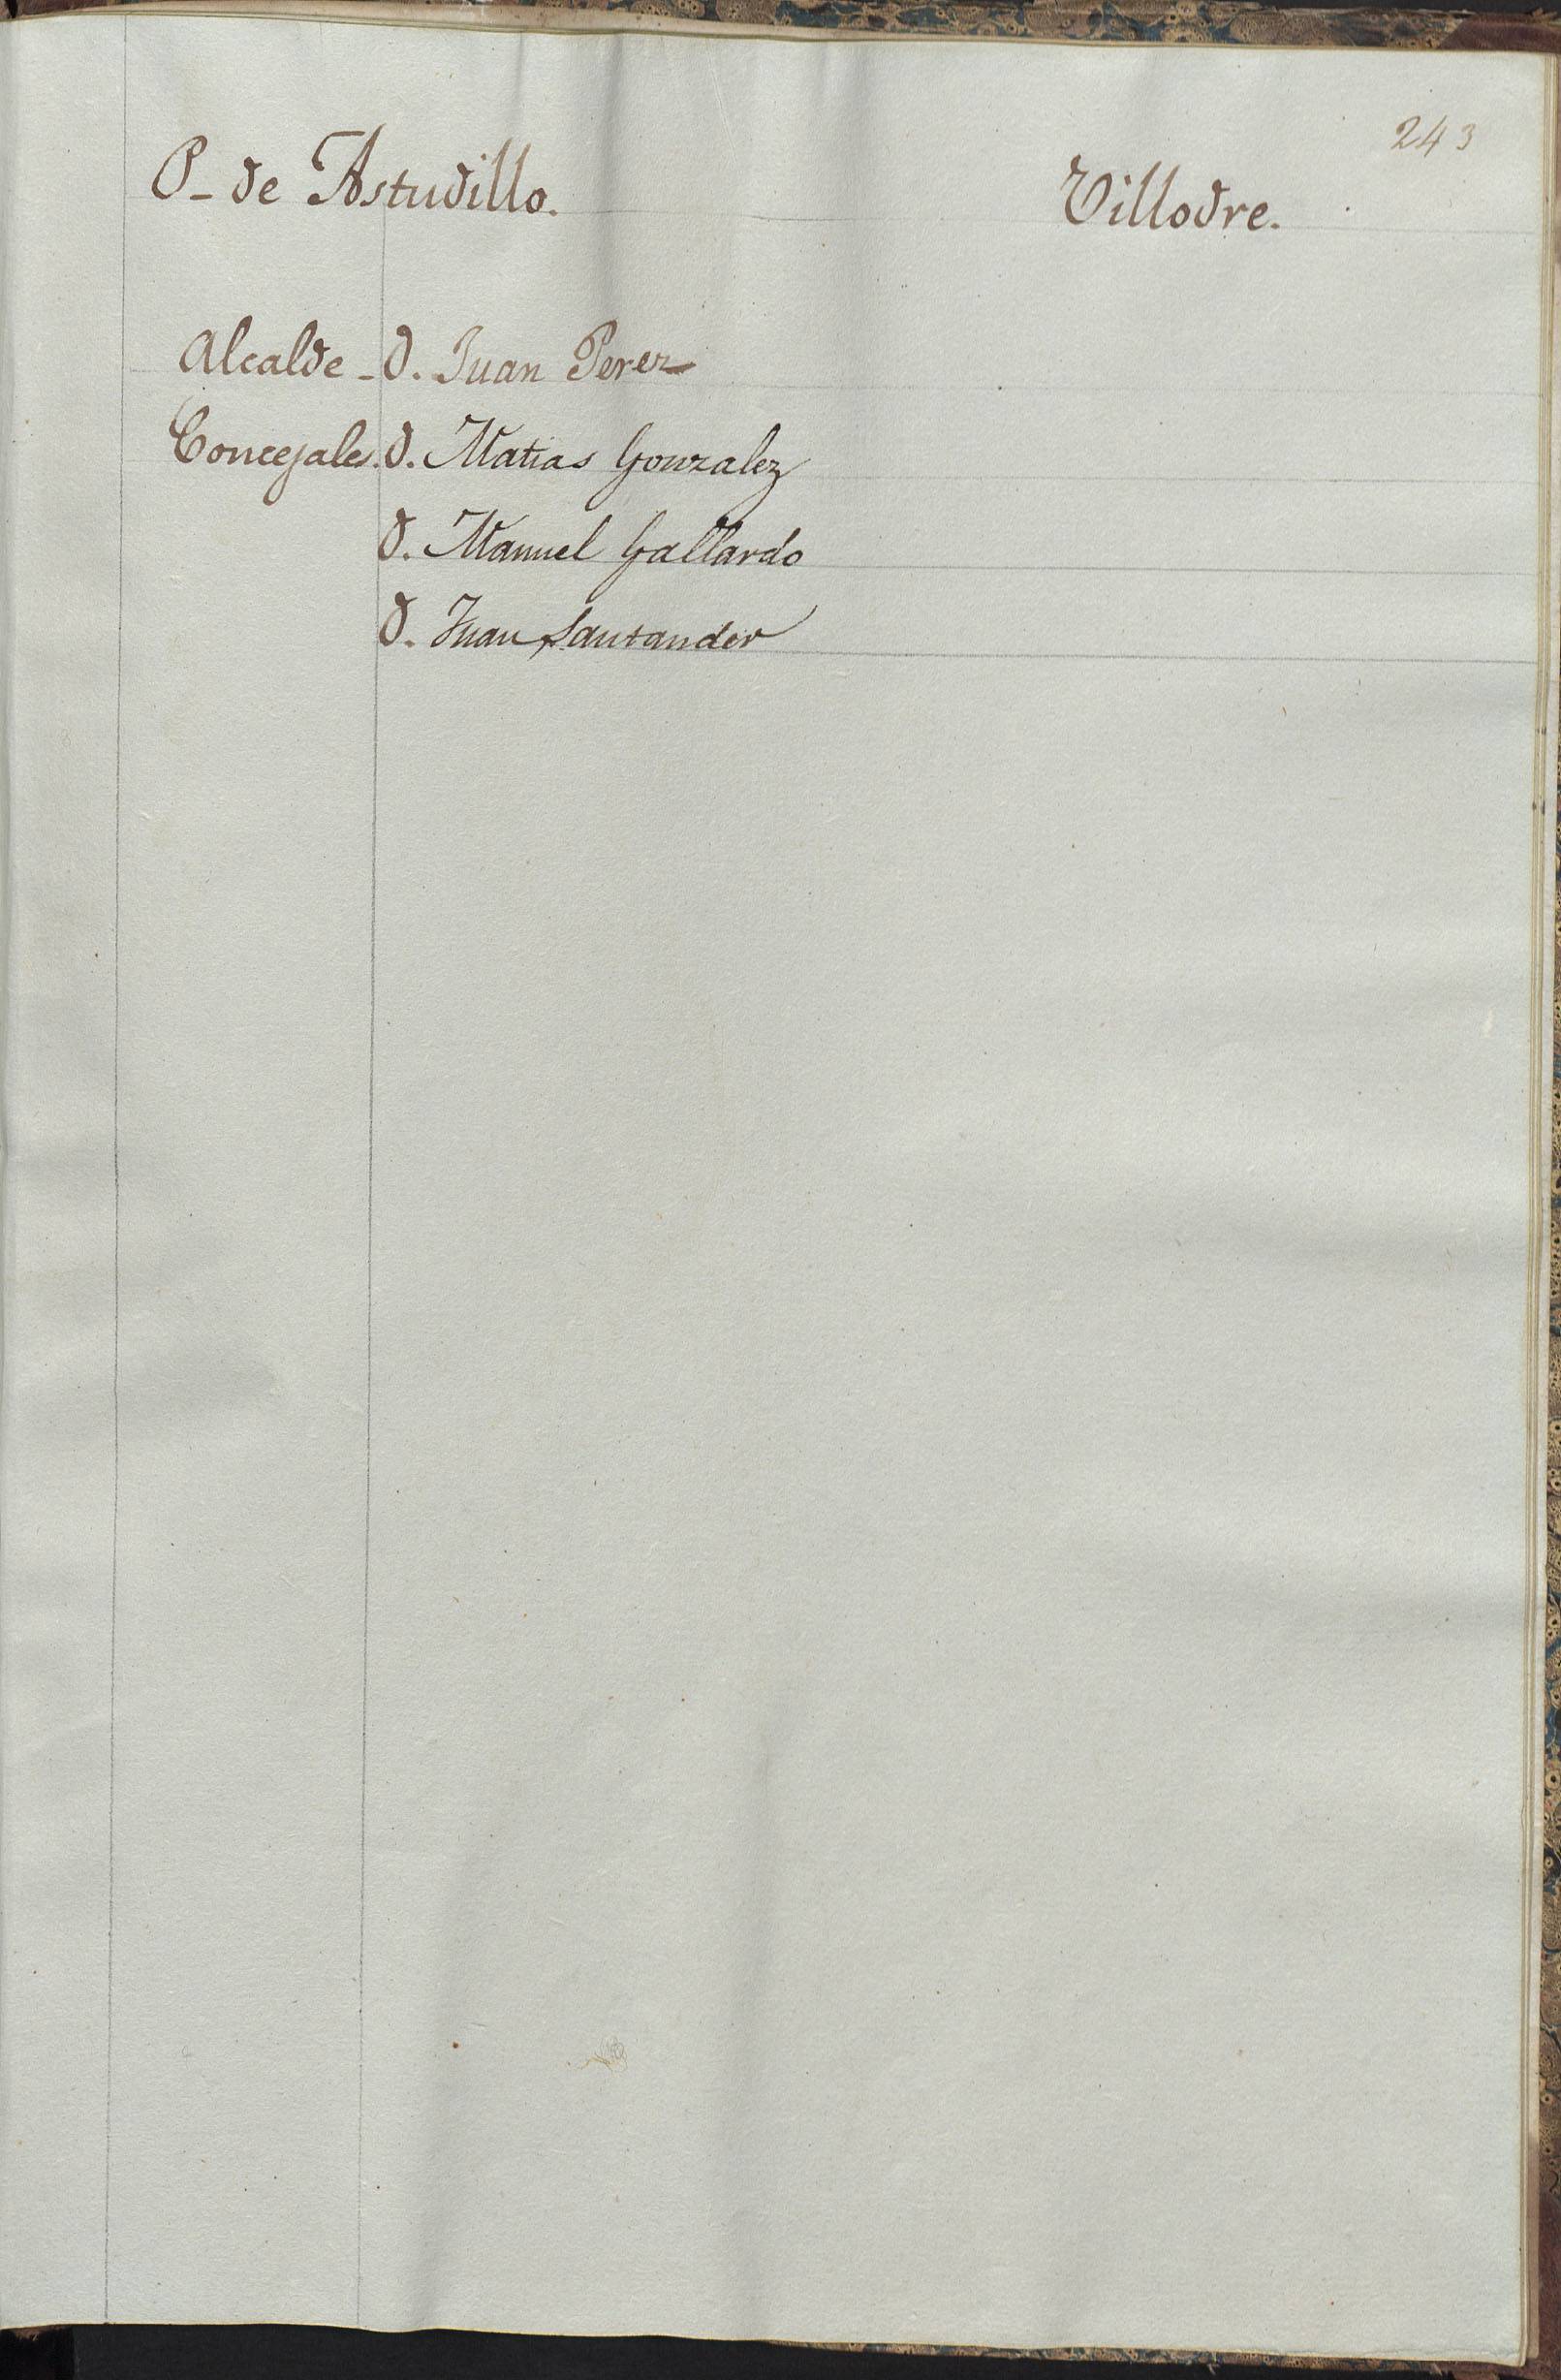 243
P- de Astudillo. Villodre.
Alcalde - D. Juan Perez
Concejales. D. Matias Gonzalez
D. Manuel Gallardo
D. Juan Santander